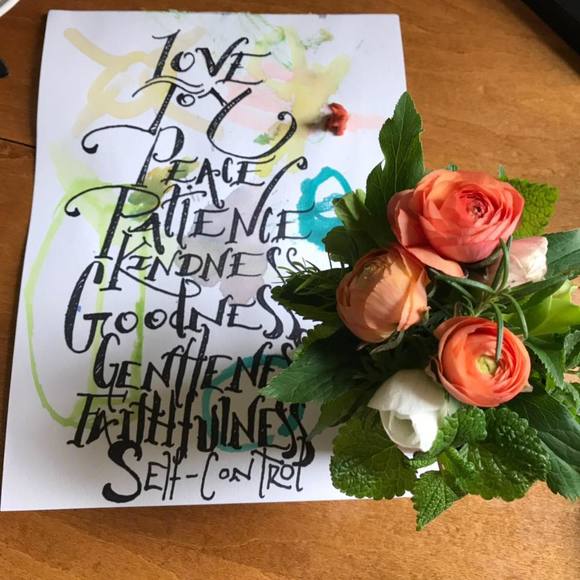 Love
Joy
Peace
Patience
Kindness
Goodness
Gentlenes
Faithfulness
Self-Control